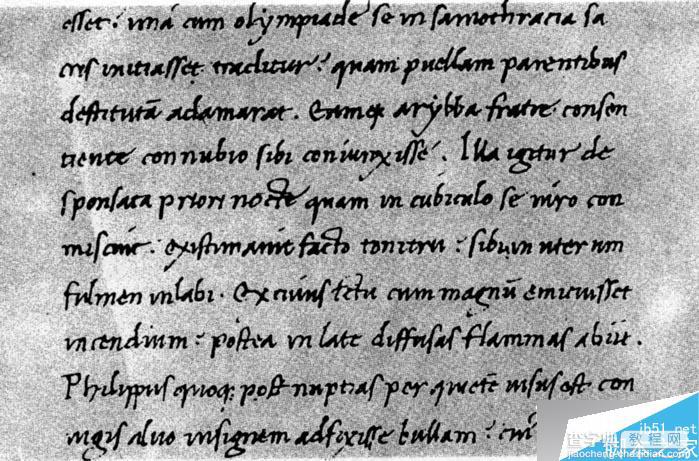 esset: una cum olympiade se in samothracia sa
cris initiasset traditur: quam puellam parentibus
destitutā adamarat. Eamq; arybba fratre consen
tiente connubio sibi coniunxisse. Illa igitur de
sponsata priori nocte quam in cubiculo se viro con
miscuit: existimavit facto tonitru: sibi in uterum
fulmen inlabi. Ex cuius ictu cum magnū emicuisset
incendium: postea in late diffusas flammas abiit.
Philippus quoq; post nuptias per quietē visus est con
iugis alvo insignem adfixisse bullam:
jb51.net
教程网
jiaocheng.chazidian.com